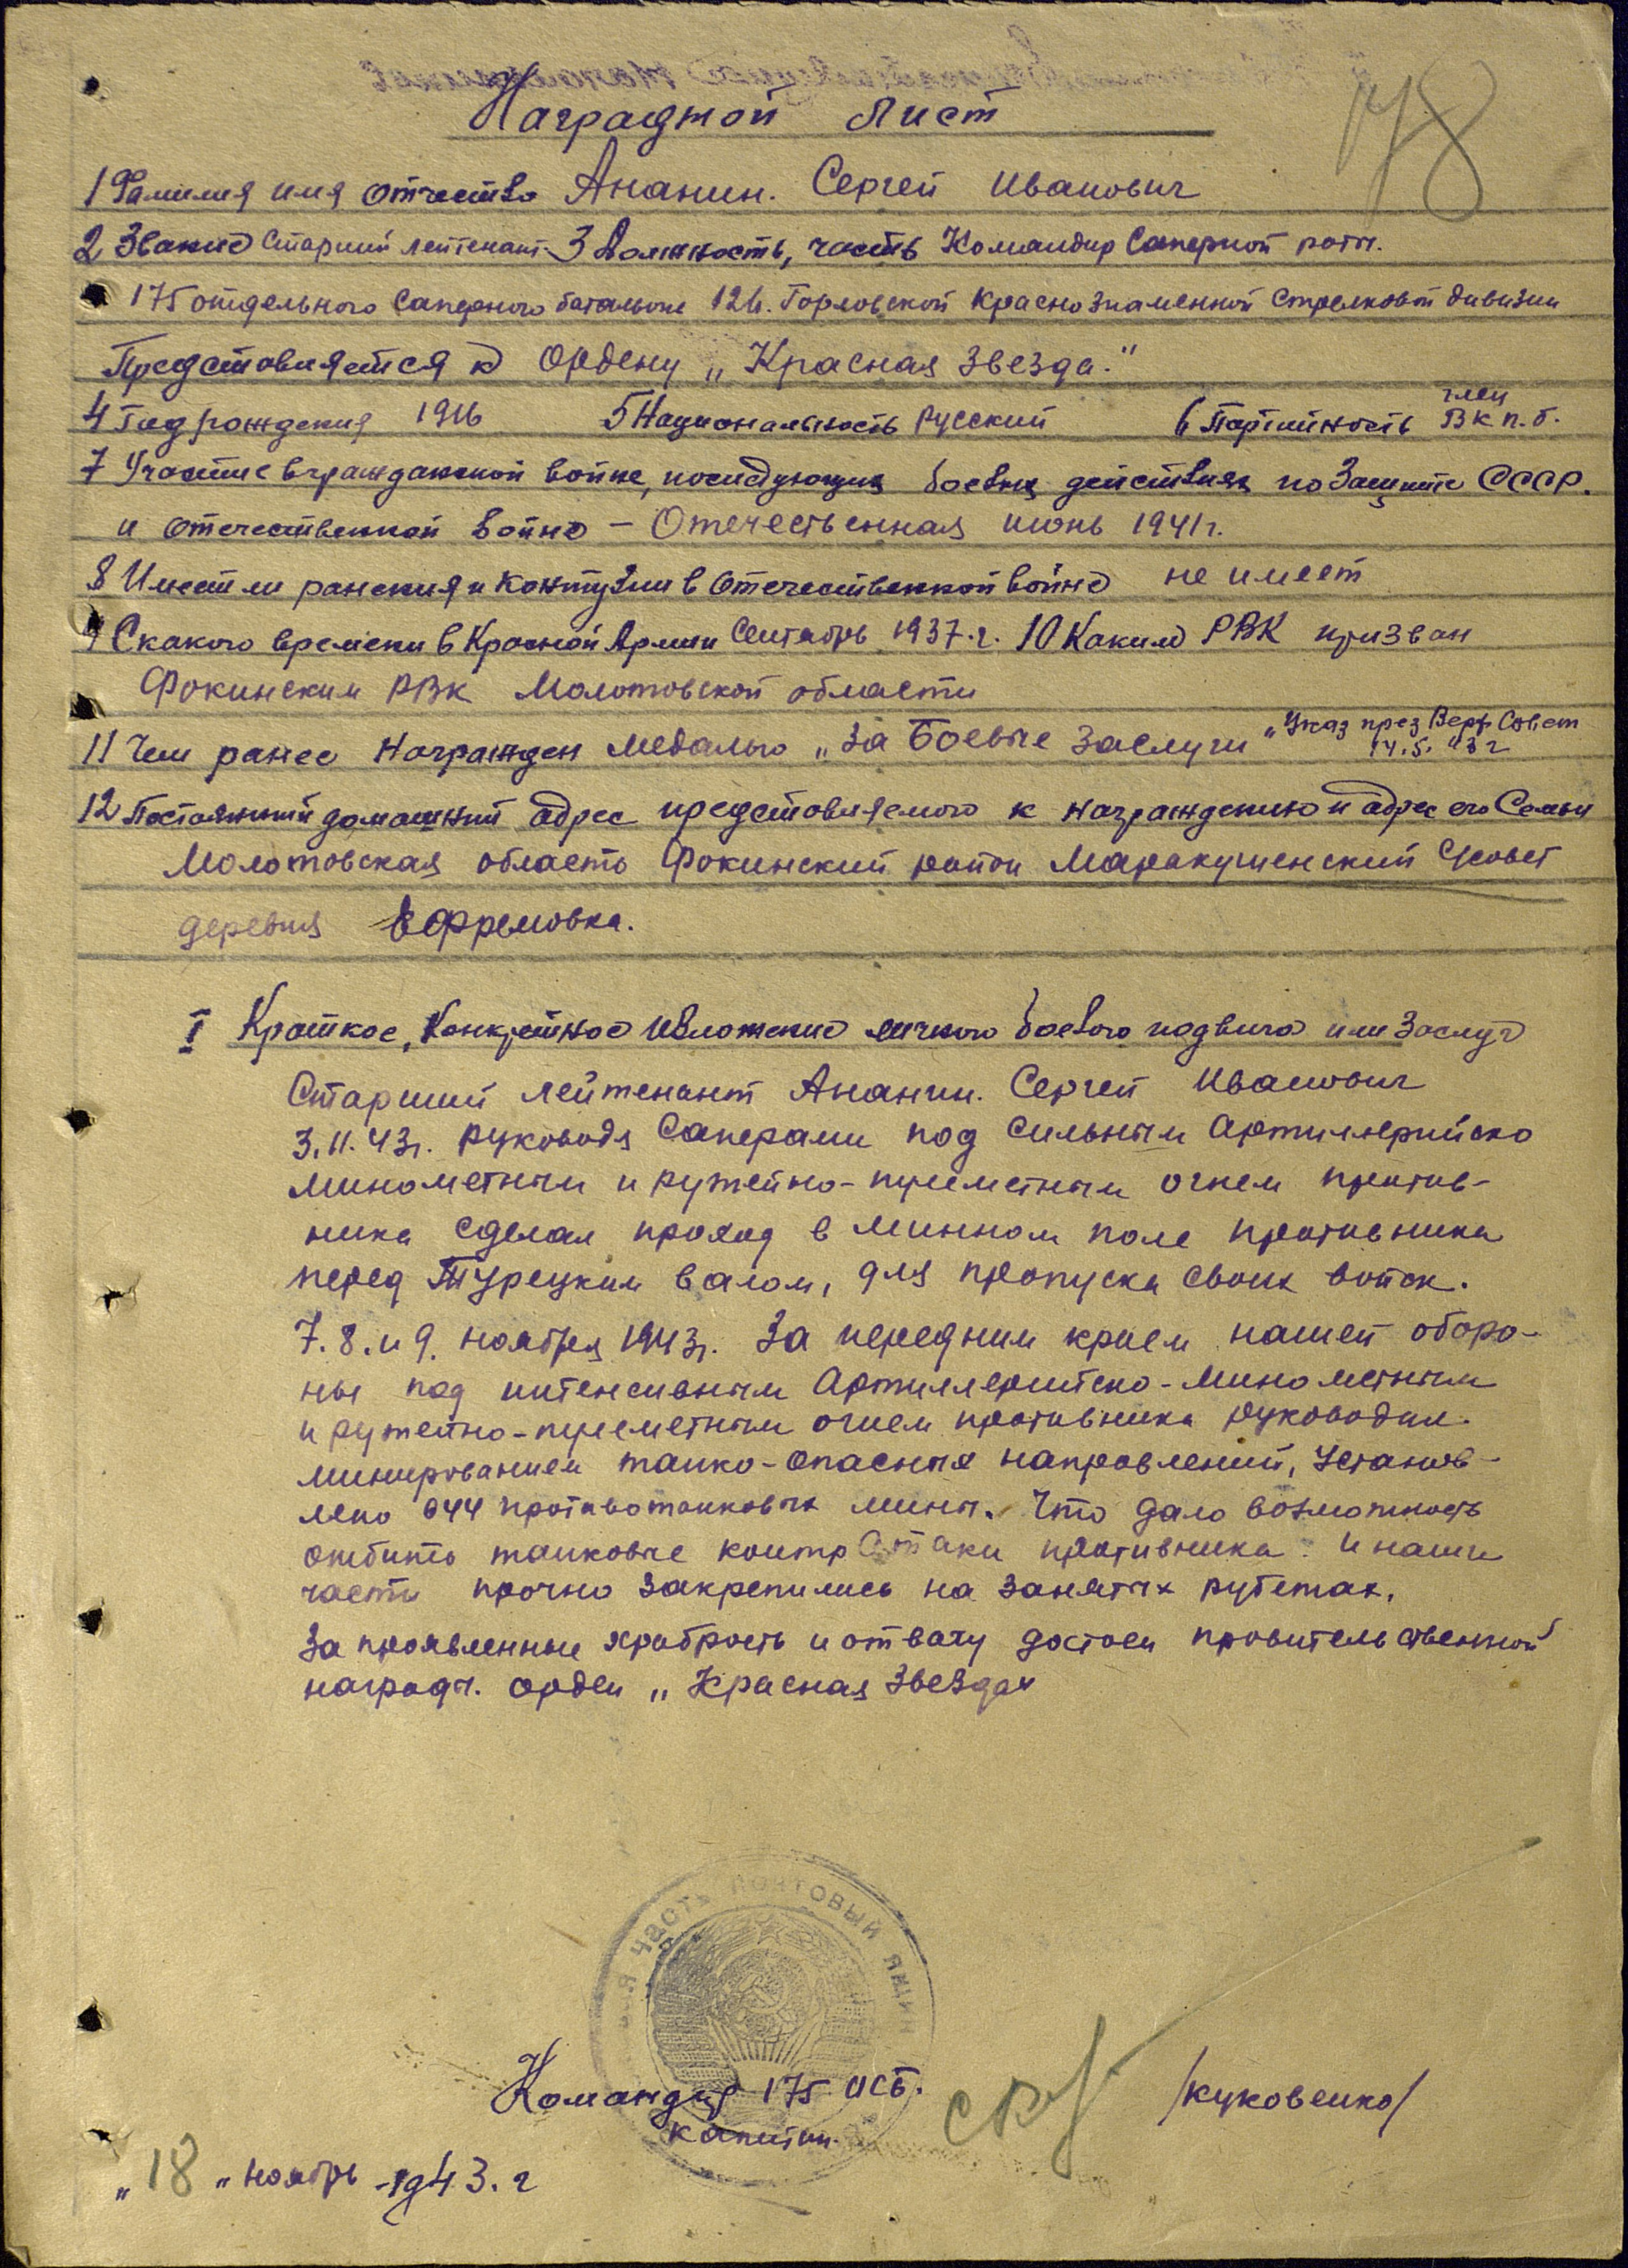 178
Наградной лист
1 Фамилия имя отчество Ананин. Сергей Иванович
2 Звание Старший лейтенант 3 Должность, часть Командир Саперной роты.
175 отдельного Саперного батальона 126. Горловской Краснознаменной Стрелковой дивизии
Представляется к Ордену „Красная Звезда."
4 Год рождения 1916 5 Национальность Русский 6 Партийность член ВКП.б.
7 Участие в гражданской войне, последующих боевых действиях по Защите СССР.
и отечественной войне – Отечественная июнь 1941г.
8 Имеет ли ранения и контузии в Отечественной войне не имеет
9 С какого времени в Красной Армии Сентябрь 1937.г. 10 Каким РВК призван
Фокинским РВК Молотовской области
11 Чем ранее награжден Медалью „За Боевые Заслуги" Указ през Верх Совет
14.5. 43 г
12 Постоянный домашний адрес представляемого к награждению и адрес его Семьи
Молотовская область Фокинский район Маракушенский С/совет
деревня Ефремовка.
I Краткое, Конкретное Изложение личного боевого подвига или Заслуг
Старший лейтенант Ананин. Сергей Иванович
3.11.43г. руководя Саперами под Сильным Артиллерийско
Минометным и ружейно-пулеметным огнем против-
ника сделал проход в Минном поле противника
перед Турецким валом, для пропуска своих войск.
7.8. и 9. ноября 1943г. За передним краем нашей оборо-
ны под интенсивным Артиллерийско-Минометным
и ружейно-пулеметным огнем противника руководил.
минированием танко-опасных направлений, Установ-
лено 944 противотанковых мины. Что дало возможность
отбить танковые контр Атаки противника. и наши
части прочно Закрепились на Занятых рубежах.
За проявленные храбрость и отвагу достоен правительственной
награды. орден „Красная Звезда"
ЧАСТЬ ПОЧТОВЫЙ ЯЩИК
Командир 175 ОСБ.
Капитан. /Куковенко/
„18" ноябрь 1943.г